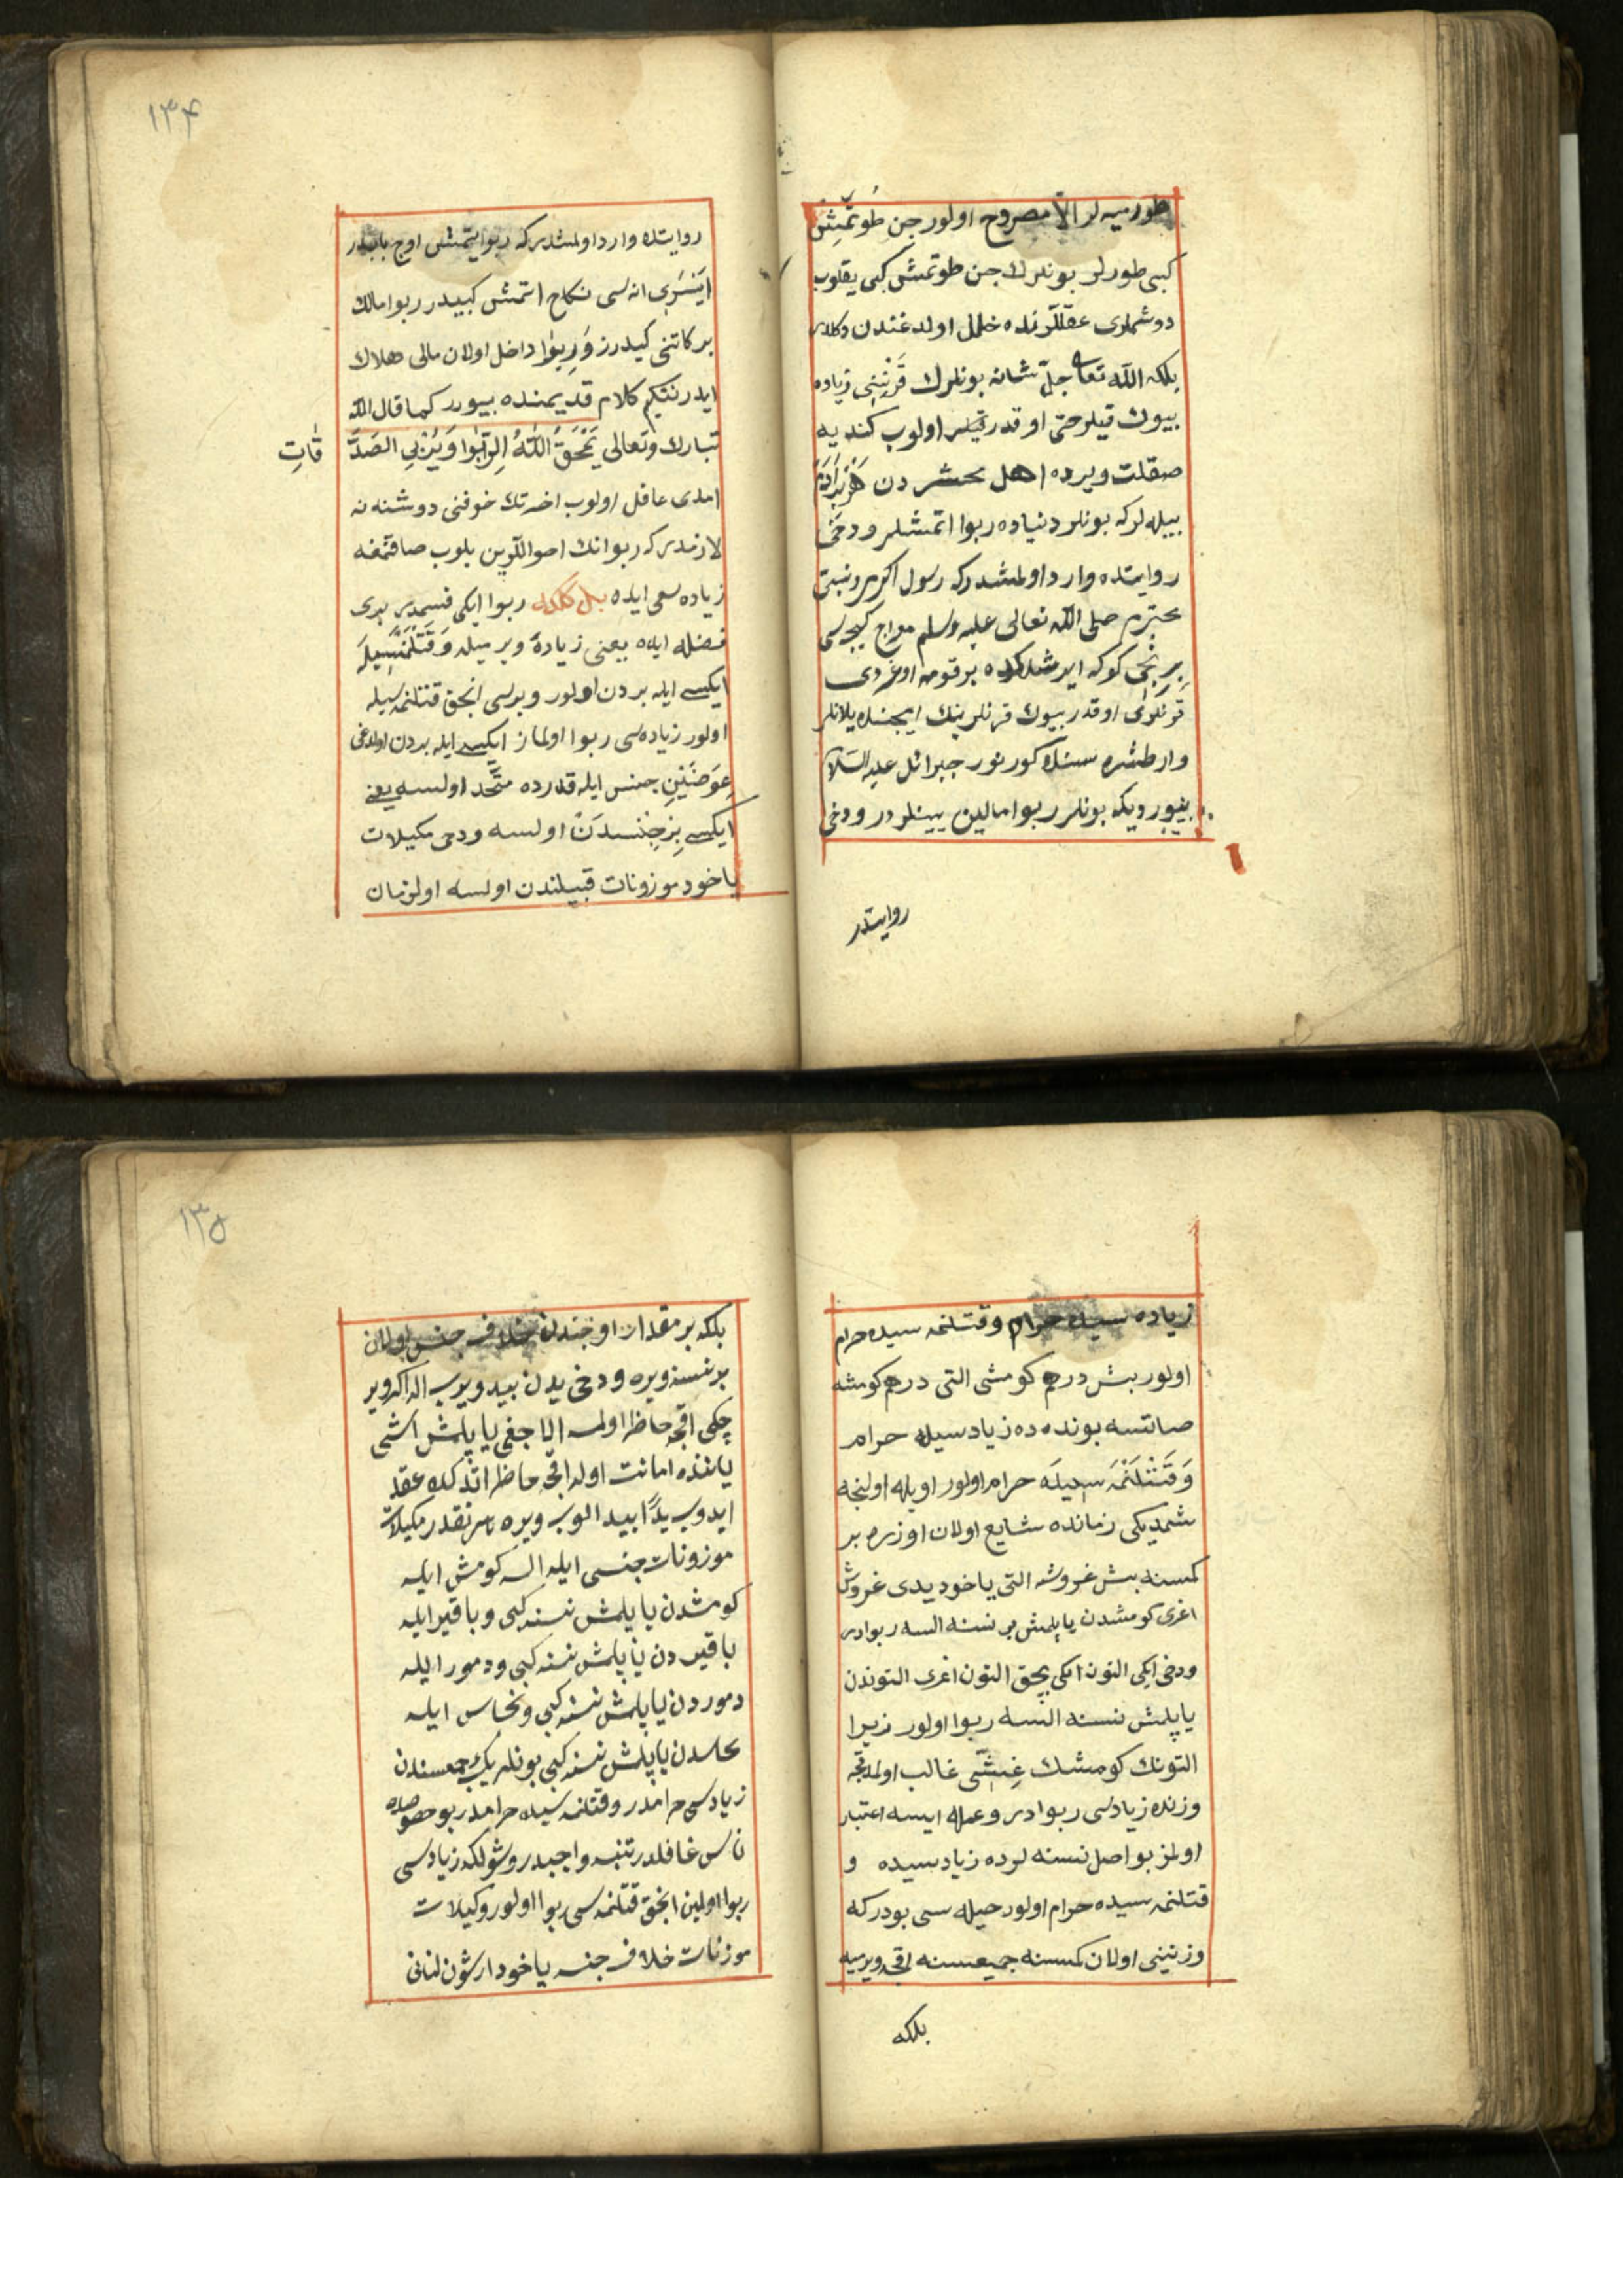 طورميه لر الا مصروح اولور جن طُوتمِّشِن
كبى طورلر بونلرك جن طوتمش كبى يقلوب
دوشملرى عقللرنده خلل اولدغندن دكلدر
بلكه الله تعالى جلّ شانه بونلرك قَرْنِنِى زياده
بيوك قيلر حتى او قدر قيلر اولوب كنديه
صقلت ويرده اهل محشر دن
بيله لركه بونلر دنياده ربوا اتمشلر ودخى
روايتده وارد اولمشدركه رسول اكرم ونبئ
محترم صلى الله تعالى عليه وسلم معراج كيجه سى
بِرِنجى كوكه ايرشدكده بر قومه اوغردى
قرنلرى او قدر بيوك قرنلرينك ايچنده يلانلر
وار طشره سنده كورنور جبرائل عليه السلام
بيورديكه بونلر ربوا مالين يينلردر ودخى
روايتدر
١٣٤
روايتده وارد اولمشدركه ربوا يتمش اوچ بابدر
اَيْسَرِى انه سى نكاح اتمش كبيدر ربوا مالك
بركاتنى كيدرر وَرِبوا داخل اولان مالى هلاك
ايدر نتكيم كلام قديمنده بيورر كما قال الله
تبارك وتعالى يَمْحَقُ اللّٰهُ الِرّبٰوا وَيُرْبِى الصَدَ
قٰاتِ
امدى عاقل اولوب اخرتك خوفنى دوشنه نه
لازمدركه ربوانك احواللرين بلوب صاقنمغه
زياده سعى ايده بل كلدله ربوا ايكى قسمدر برى
فضله ايله يعنى زيادۀ ويرميله وَقَتْلَنْمَسِيلَه
ايكيسى ايله بردن اولور وبرسى انجق قتلنمه سيله
اولور زياده سى ربوا اولماز ايكيسى ايله بردن اولدغى
عِوَضَيْنِ جنس ايله قدرده متّحد اولسه يعنى
ايكيسى بِرْجِنْسدَنْ اولسه ودخى مكيلات
ياخود موزونات قبيلندن اولسه اولزمان
زياده سيله حرام وقتلنمه سيده حرام
اولور بش درهم كومشى التى درهم كومشه
صاتسه بونده ده زيادسيله حرام
وَقَتْلَنْمَه سيلَه حرام اولور اويله اولنجه
شمديكى زمانده شايع اولان اوزره بر
كمسنه بش غروشه التى ياخود يدى غروش
اغرى كومشدن ياپلمش بر نسنه السه ربوادر
ودخى ايكى التون ايكى بچق التون اغرى التوندن
ياپلمش نسنه السه ربوا اولور زيرا
التونك كومشك غِشّى غالب اولمدقجه
وزنده زيادسى ربوادر وعمله ايسه اعتبار
اولنمز بو اصل نسنه لرده زيادسيده و
قتلنمه سيده حرام اولور حيله سى بودركه
وزنينى اولان كمسنه جميعسنه اقچه ويرميه
بلكه
١٣٥
بلكه بر مقدار اوجندن خلاف جنس اولان
بر نسنه ويره ودخى يدن بيد ويرب اله اكر وير
چكى اقچه حاظر اولمسه الاجغى ياپلمش اشى
ياننده امانت اوله اقچه حاظر اتدكده عقد
ايدوب يدًا بيد الوب ويره ناس نقدر مكيلات
موزونات جنسى ايله السه كومش ايله
كومشدن ياپلمش نسنه كبى وباقير ايله
باقيردن ياپلمش نسنه كبى ودمور ايله
دموردن ياپلمش نسنه كبى ونحاس ايله
نحاسدن ياپلمش نسنه كبى بونلرك جمعسندن
زيادسى حرامدر وقتلنمه سيده حرامدر بو حصوصده
ناس غافلدر تنبه واجبدر وشولكه زيادسى
ربوا اولمين انجق قتلنمه سى ربوا اولور وكيلات
موزنات خلاف جنسه ياخود ارشون لنانى